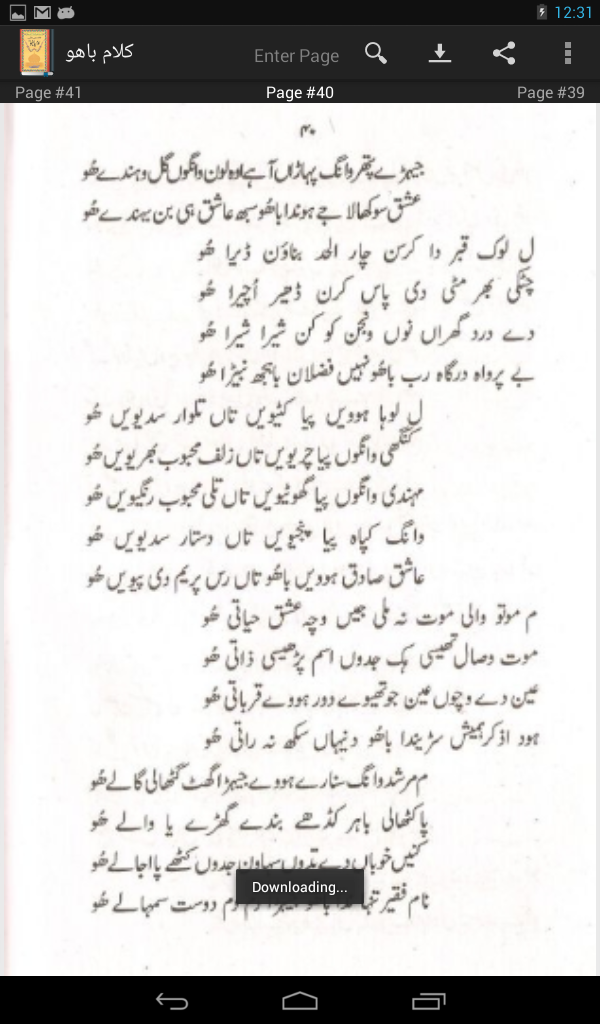 12:31
کلام باھو
Enter Page
Page #41
Page #40
Page #39
۴۰
جیہڑے پتھر وانگ پہاڑاں آہے اوہ لون وانگوں گل وہندے ھُو
عشق سوکھالا جے ہوندا باھُو سبھ عاشق ہی بن بہندے ھُو
ل لوک قبر دا کرسن چار الحد بناؤن ڈیرا ھُو
چٹکی بھر مٹی دی پاس کرن ڈھیر اُچیرا ھُو
دے درد گھراں نوں ونجن کوکن شیرا شیرا ھُو
بے پرواہ درگاہ رب باھُو نہیں فضلان باہجھ نبیڑا ھُو
ل لوہا ہوویں پیا کٹیویں تاں تلوار سدیویں ھُو
کنگھی وانگوں پیا چریویں تاں زلف محبوب بھریویں ھُو
مہندی وانگوں پیا گھوٹیویں تاں تلی محبوب رنگیویں ھُو
وانگ کپاہ پیا پنجیویں تاں دستار سدیویں ھُو
عاشق صادق ہوویں باھُو تاں رس پریم دی پیویں ھُو
م موتو والی موت نہ ملی جیں وچہ عشق حیاتی ھُو
موت وصال تھیسی ہک جدوں اسم پڑھیسی ذاتی ھُو
عین دے وچوں عین جو تھیوے دور ہووے قرباتی ھُو
ہود اذکر ہمیش سڑیندا باھُو دنیہاں سکھ نہ راتی ھُو
م مرشد وانگ سنارے ہووے جیہڑا گھٹ کٹھالی گالے ھُو
پا کٹھالی باہر کڈھے بندے گھڑے یا والے ھُو
کنیں خوباں دے تدوں سہاون جدوں کٹھے پا اجالے ھُو
نام فقیر دم دوست سمہالے ھُو
Downloading...